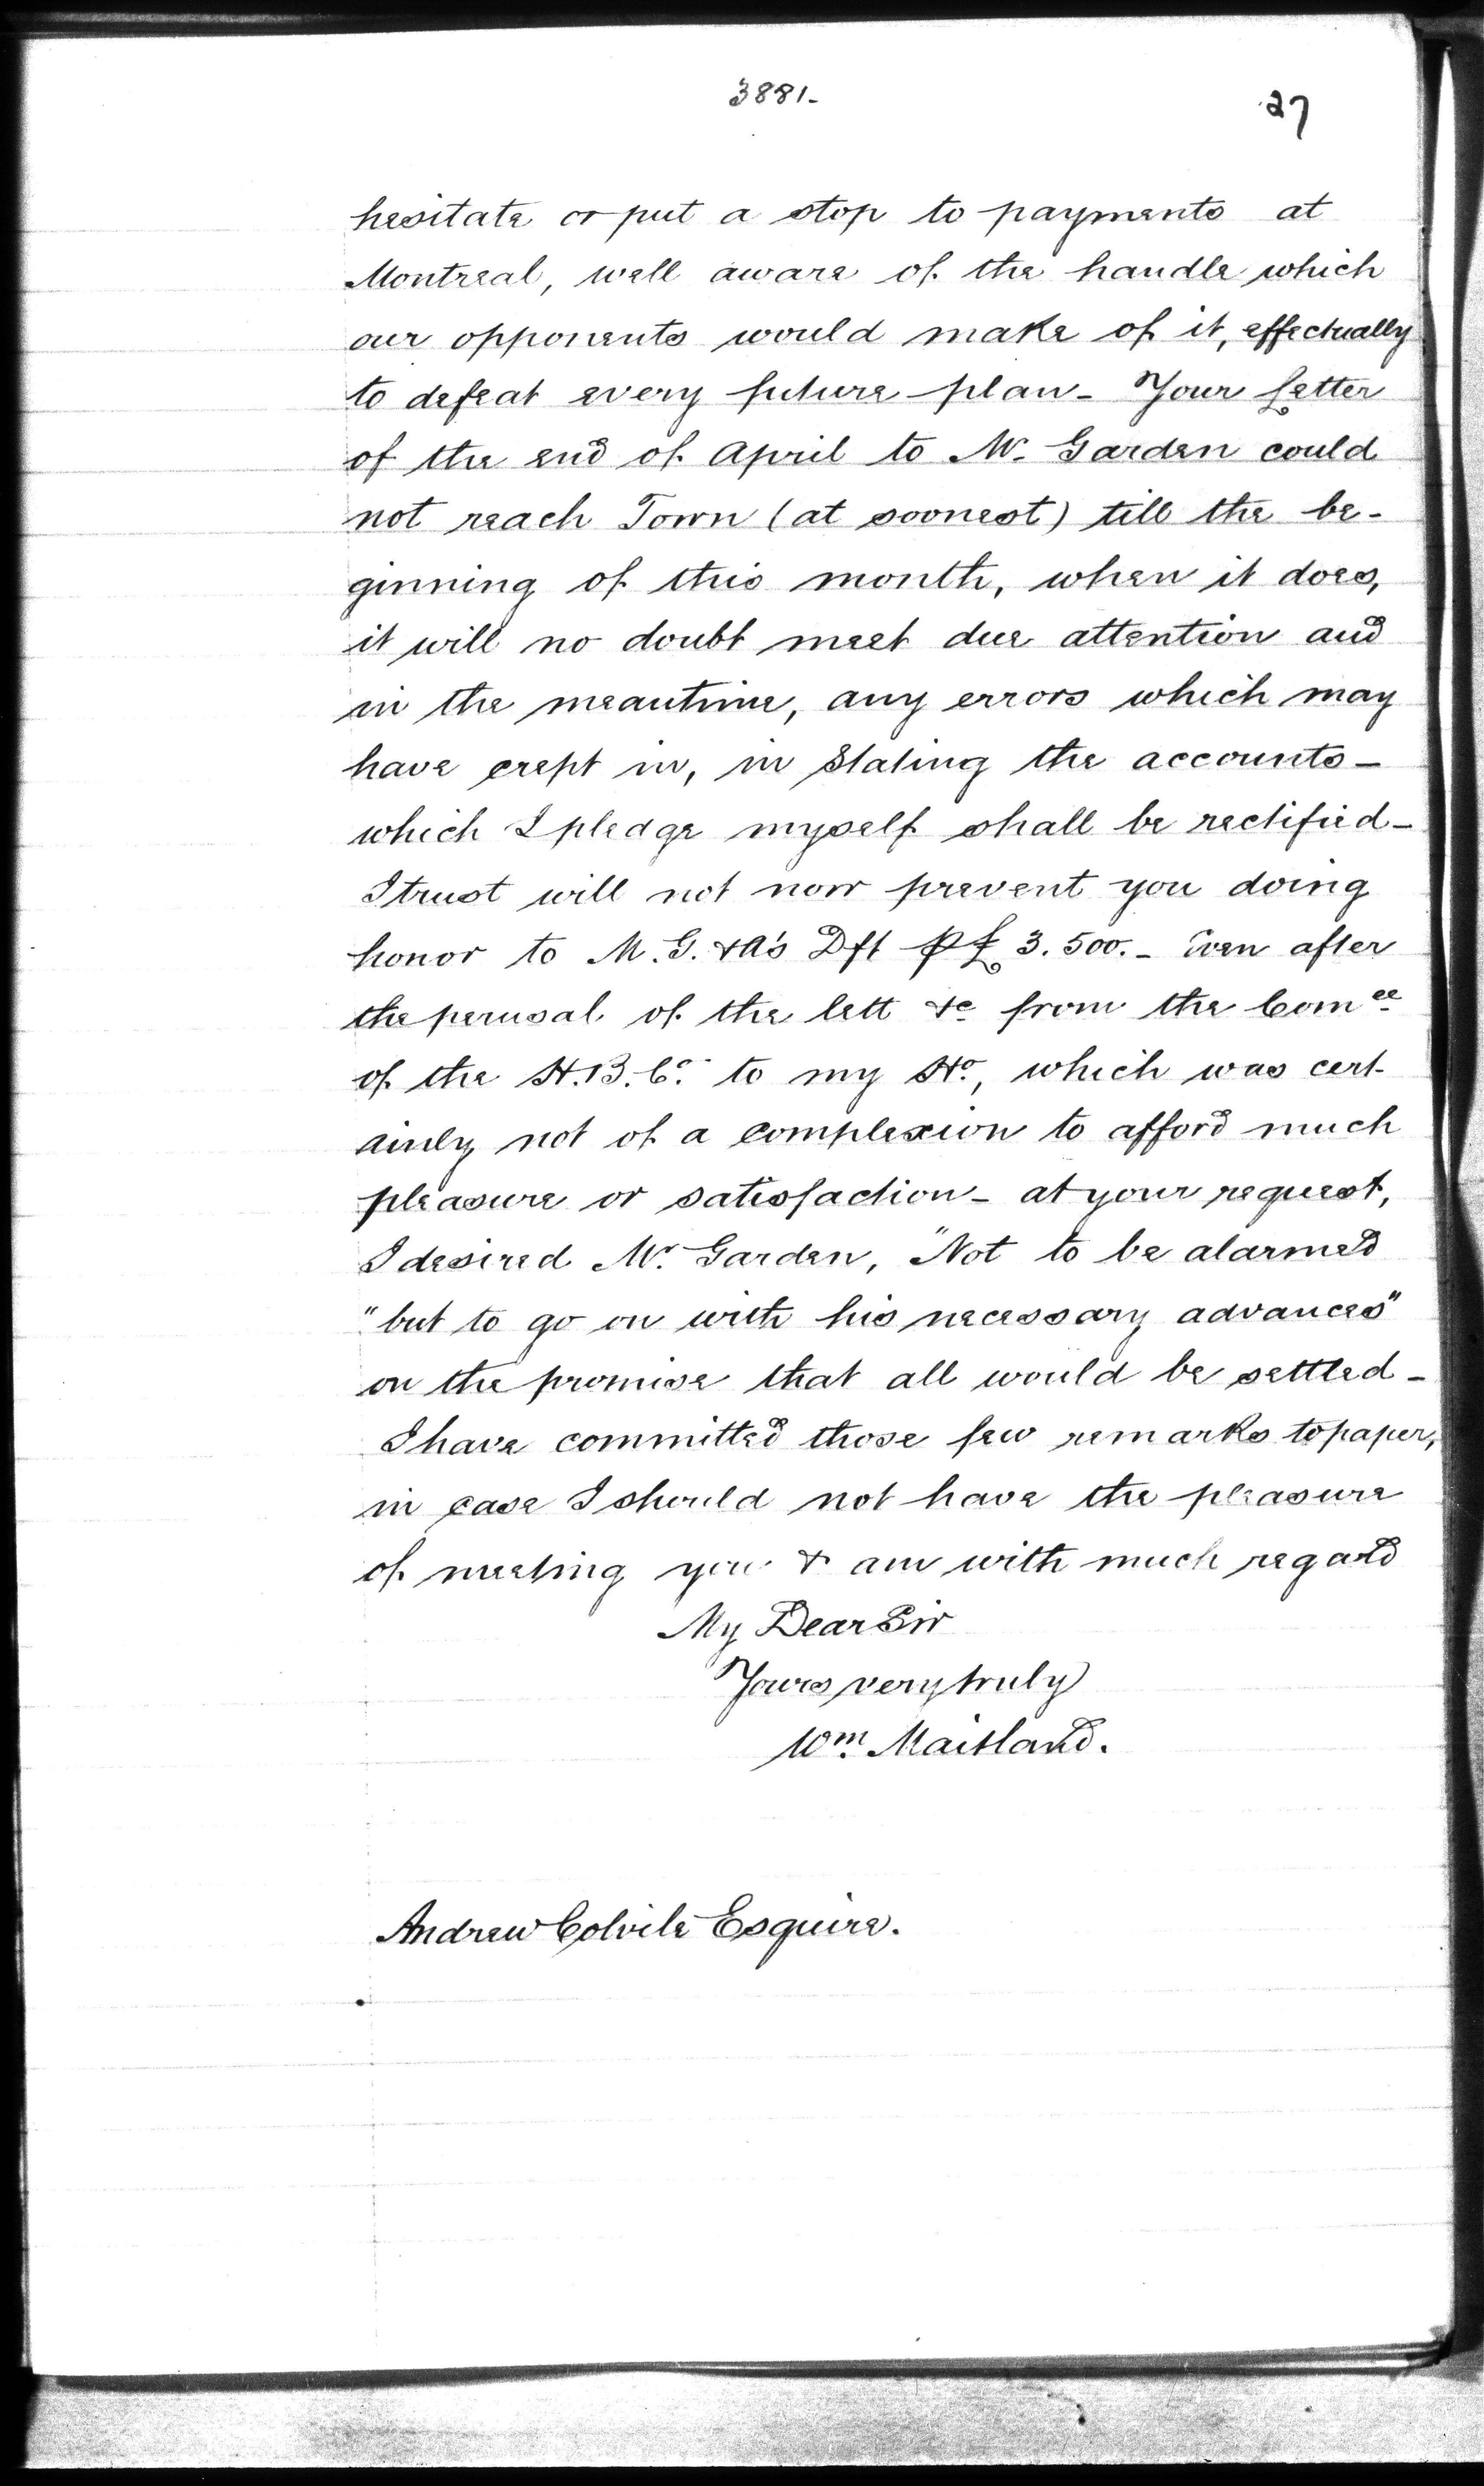 3881-
27
hesitate or put a stop to payments at
Montreal, well aware of the handle which
our opponents would make of it, effectually
to defeat every future plan - Your Letter
of the end of April to Mr. Garden could
not reach Town (at soonest) till the be-
ginning of this month, when it does,
it will no doubt meet due attention and
in the meantime, any errors which may
have crept in, in stating the accounts -
which I pledge myself shall be rectified -
I trust will not now prevent you doing
honor to M. G. & A's Dft p £ 3.500. - Even after
the perusal of the lett &c from the Comee
of the H.B. Co. to my Ho., which was cert-
ainly not of a complexion to afford much
pleasure or satisfaction - at your request,
I desired Mr. Garden, "Not to be alarmed
"but to go on with his necessary advances"
on the promise that all would be settled -
I have committed those few remarks to paper,
in case I should not have the pleasure
of meeting you & am with much regard
My Dear Sir
Yours very truly
Wm. Maitland.
Andrew Colvile Esquire.